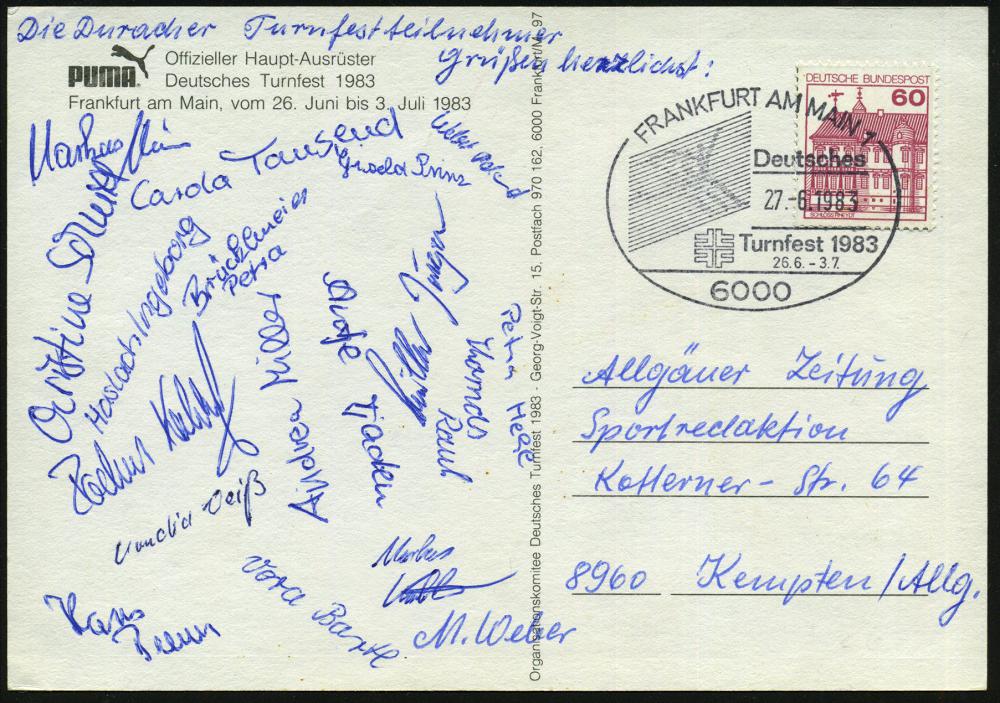 Die Duracher Turnfestteilnehmer
Grüßen herzlichst:
PUMA
Offizieller Haupt-Ausrüster
Deutsches Turnfest 1983
Frankfurt am Main, vom 26. Juni bis 3. Juli 1983
Markus
Carda Tausend
Prinz
Christine
Haslach Ingeborg
Brücklmeier
Petra
Helmut
Andrea Miller
Antje Tjaden
Jürgen
Petra Hege
Claudia Veiß
Hans
Vera Bartl
Markus
M. Weber
Organisationskomitee Deutsches Turnfest 1983 · Georg-Voigt-Str. 15, Postfach 970 162, 6000 Frankfurt/M. 97
DEUTSCHE BUNDESPOST
60
SCHLOSS RHEYDT
FRANKFURT AM MAIN 1
Deutsches
27.-6.1983
Turnfest 1983
26.6. - 3.7.
6000
Allgäuer Zeitung
Sportredaktion
Kotterner-Str. 64
8960 Kempten/Allg.